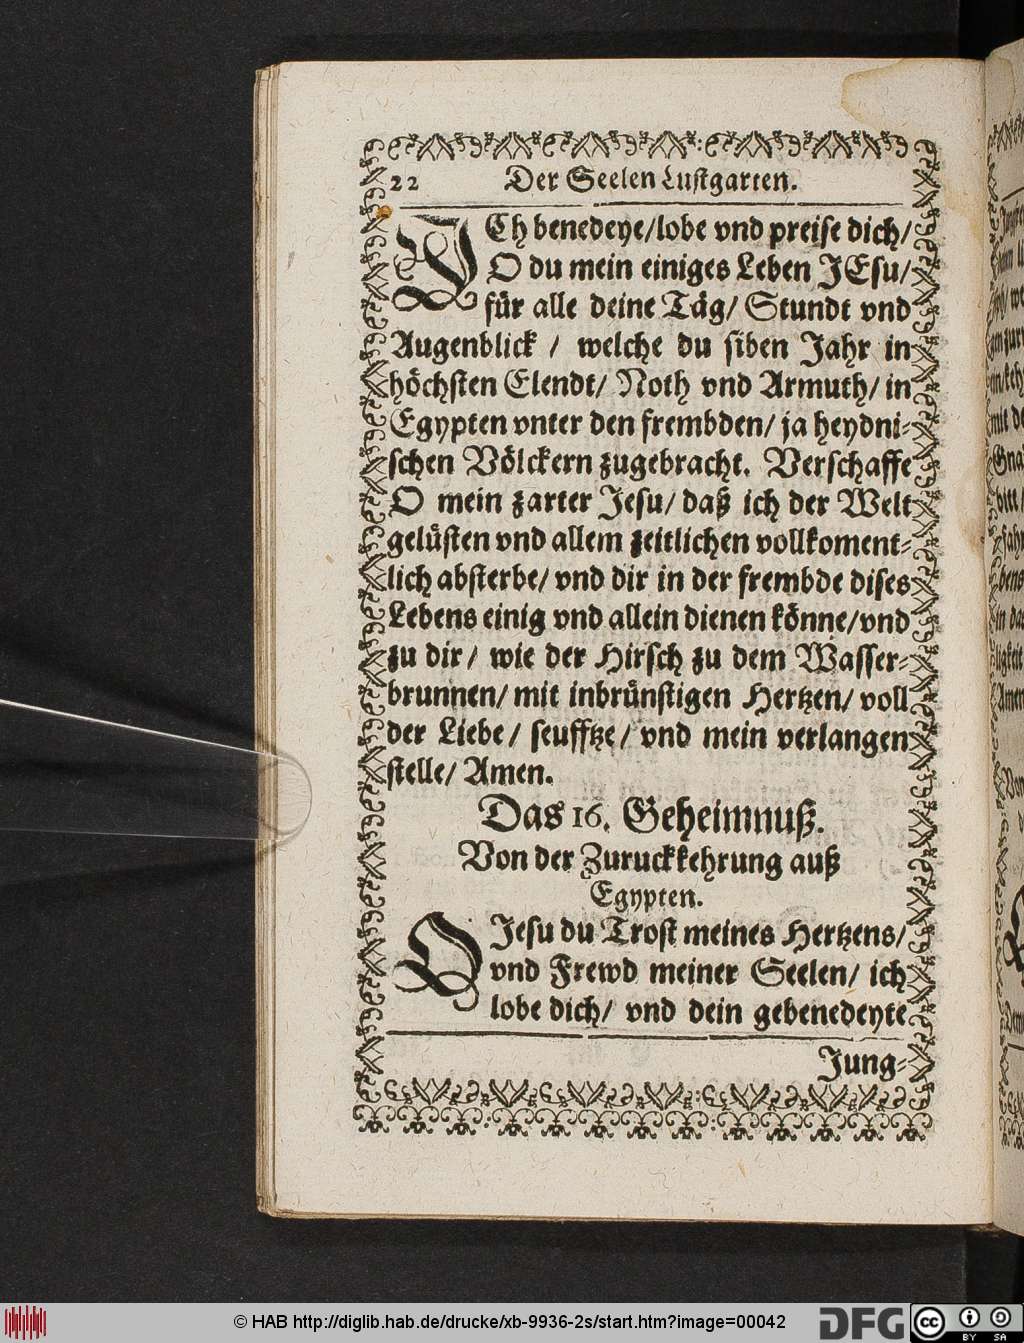 22 Der Seelen Lustgarten.
ICh benedeye/lobe vnd preise dich/
O du mein einiges Leben JEsu/
für alle deine Täg/ Stundt vnd
Augenblick / welche du siben Jahr in
höchsten Elendt/ Noth vnd Armuth/ in
Egypten vnter den frembden/ ja heydni-
schen Völckern zugebracht. Verschaffe
O mein zarter Jesu/ daß ich der Welt
gelüsten vnd allem zeitlichen vollkoment-
lich absterbe/ vnd dir in der frembde dises
Lebens einig vnd allein dienen könne/vnd
zu dir/ wie der Hirsch zu dem Wasser-
brunnen/ mit inbrünstigen Hertzen/ voll
der Liebe/ seufftze/ vnd mein verlangen
stelle/ Amen.
Das 16. Geheimnuß.
Von der Zuruckkehrung auß
Egypten.
O Jesu du Trost meines Hertzens/
vnd Frewd meiner Seelen/ ich
lobe dich/ vnd dein gebenedeyte
Jung-
© HAB http://diglib.hab.de/drucke/xb-9936-2s/start.htm?image=00042
DFG
cc
BY SA